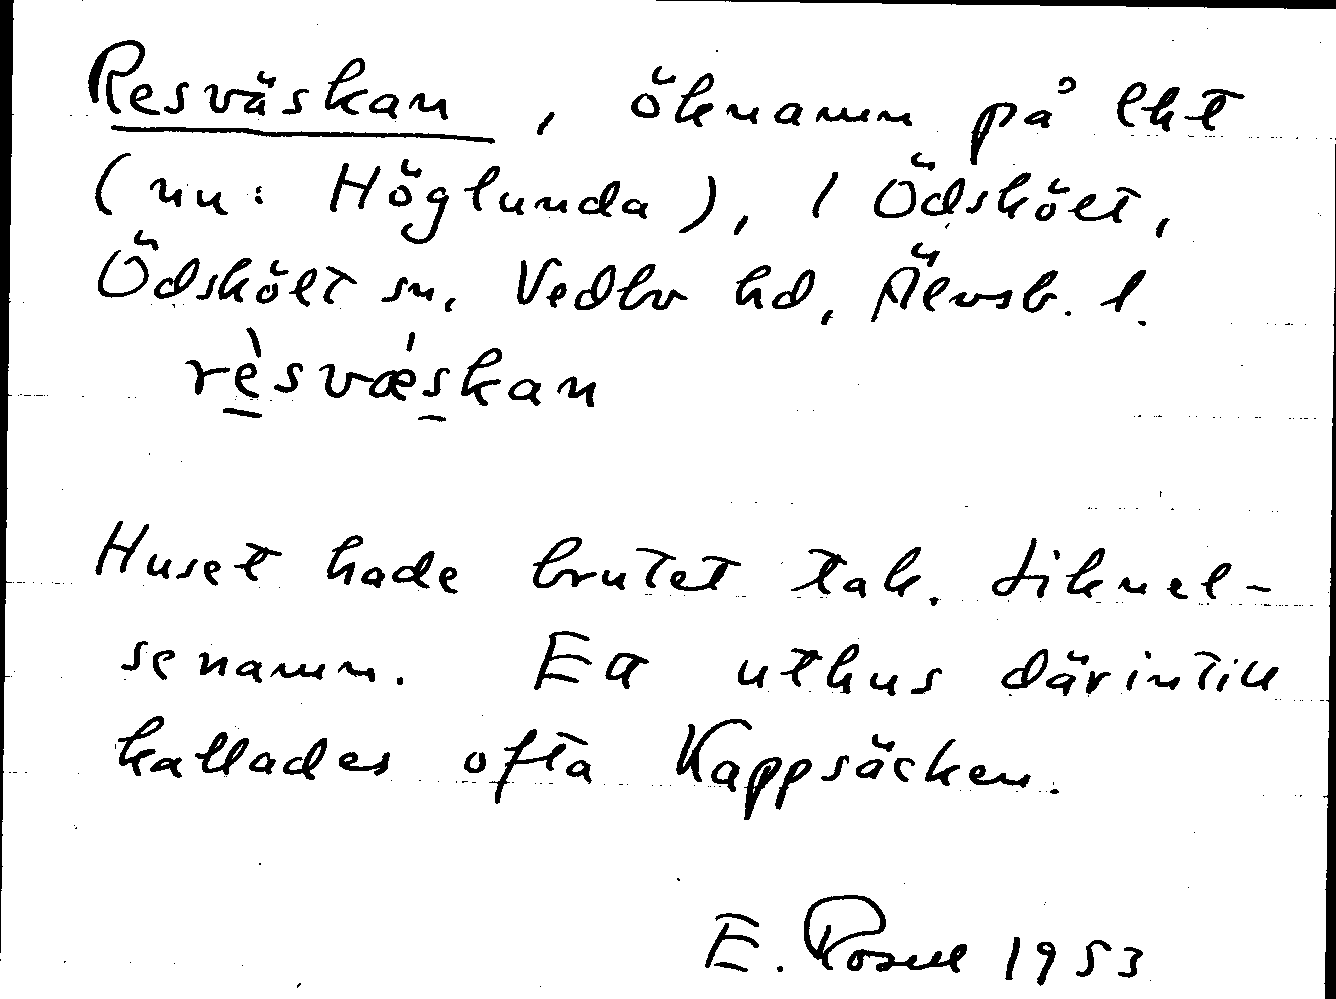 Resväskan, öknamn på lht
(nu: Höglunda), 1 Ödskölt,
Ödskölt sn, Vedbo hd, Älvsb. l.
rèsvǽskan
Huset hade brutet tak. Liknel-
senamn. Ett uthus därintill
kallades ofta Kappsäcken.
E. Rosell 1953